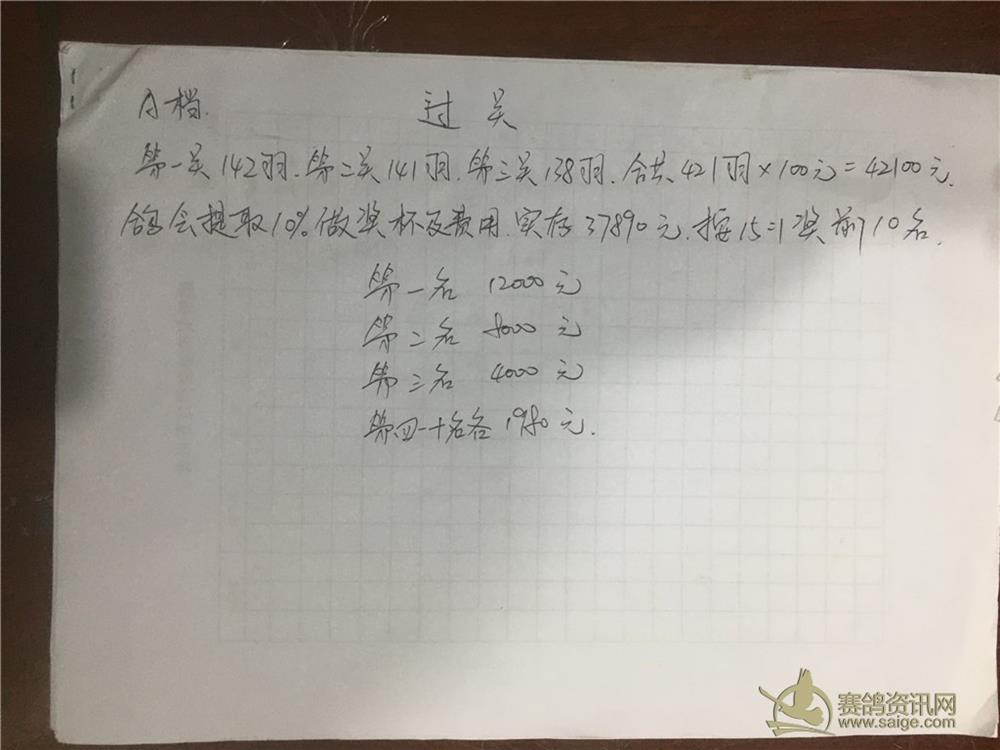 A档. 过关
第一关142羽.第二关141羽.第三关138羽.合共421羽×100元=42100元.
鸽会提取10%做奖杯及费用.实存37890元.按15=1奖前10名.
第一名 12000元
第二名 8000元
第三名 4000元
第四一十名各1980元.
赛鸽资讯网
www.saige.com